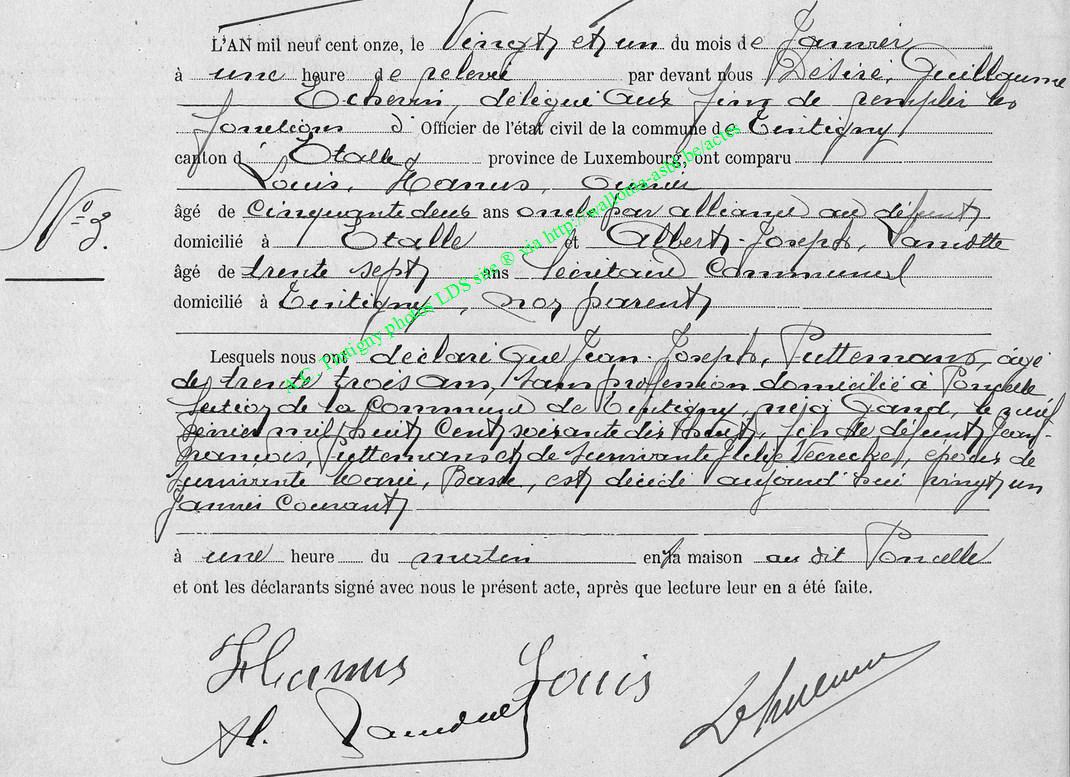 L'AN mil neuf cent onze, le Vingt et un du mois de Janvier
à une heure de relevé par devant nous Désiré, Guillaume
délégué aux fins de remplir les
fonctions d' Officier de l'état civil de la commune de Tintigny
canton d' Etalle, province de Luxembourg, ont comparu
Louis, Hanus, ouvrier
N° 3.
âgé de cinquante deux ans oncle par alliance au défunt
domicilié à Etalle et Albert-Joseph, Lamotte
âgé de trente sept ans Secrétaire Communal
domicilié à Tintigny, non parent
Lesquels nous ont déclaré Que Jean-Joseph, Puttemans, âgé
de trente trois ans, sans profession domicilié à Poncelle
Section de la Commune de Tintigny, né à Gand, le neuf
février mil huit Cent soixante dix huit, fils de défunt Jean-
François, Puttemans et de survivante Julie époux de
survivante Marie, est décédé aujourd'hui vingt un
Janvier Courant
à une heure du matin en la maison au dit Poncelle
et ont les déclarants signé avec nous le présent acte, après que lecture leur en a été faite.
Hanus Louis
Al.
A.C. Tintigny photos LDS site ® via http://wallonia-asbl.be/actes